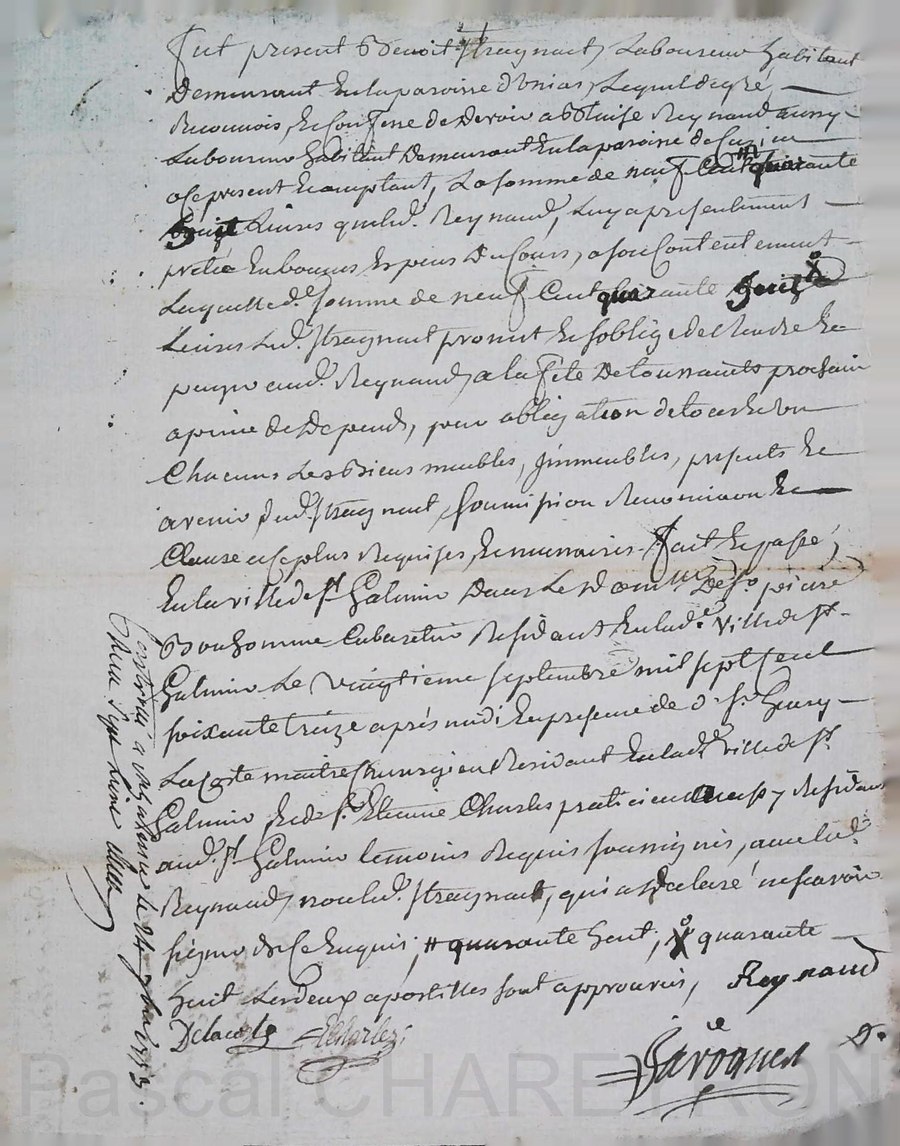 fut present Benoit Thaynact, Laboureur habitant
Demeurant En la paroisse d'unias, Lequel de gré,
Reconnois, Et Confesse de devoir a Blaise Reynaud aussy
Laboureur habitant Demeurant En la paroisse de Cuzieu
a ce present Et acceptant, La somme de neuf Cent # quarante
huit Livres que led. Reynaud, Luy a presentement
pretée En bonnes Especes Du Cours, a son Contentement
Laquelle de. somme de neuf Cent quarante huit
Livres Led. promet Et s'oblige de Rendre Et
payer aud. Reynaud, a la fête De toussaints prochain
a peine de Depends, pour obligation de tout
Chacuns Les Biens meubles, Jmmeubles, presents Et
avenir dud. soumission Renonciation Et
Clause a ce plus Requises, Et necessaires. fait Et passé,
En la ville de St. Galmier Dans Le Dom.lle De Sr. pierre
Bonhomme Cabaretier Residant En lad.e ville de St.
Galmier Le vingtieme septembre mil sept Cent
soixante treize après midi En presence de Sr. henry
Lacoste maitre Chirurgien Residant En lad.e ville de St.
Galmier Et de Sr. Etienne Charles praticien aussy Residant
aud. St. Galmier temoins Requis soussignés, avec led.
Reynaud, non led. qui a Declaré ne scavoir
signer de ce Enquis, # quarante huit, X quarante
huit Les deux apostilles sont approuvées, Reynaud
Delacoste Charles
Laroque
Controlé a le 24 7bre 1773.
Reçu